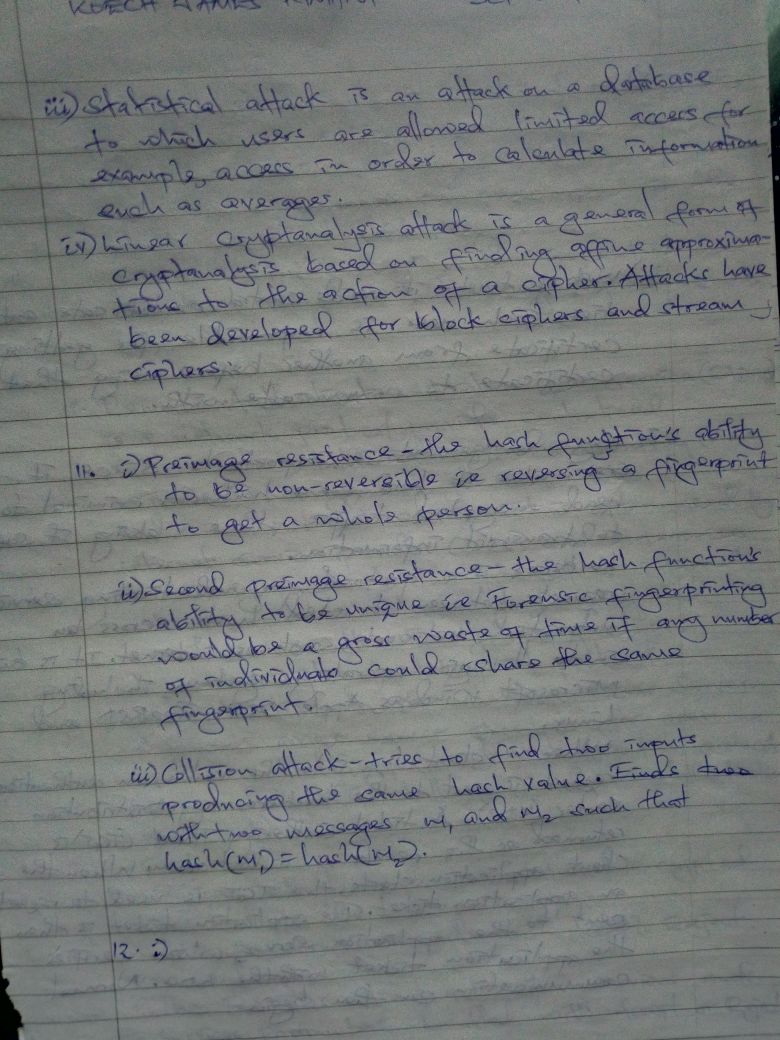 KOECH JAMES
iii) Statistical attack is an attack on a database
to which users are allowed limited access for
example, access in order to calculate information
such as averages.
iv) Linear cryptanalysis attack is a general form of
cryptanalysis based on finding affine approxima-
tions to the action of a cipher. Attacks have
been developed for block ciphers and stream
ciphers.
11. i) Preimage resistance - the hash function's ability
to be non-reversible ie reversing a fingerprint
to get a whole person.
ii) Second preimage resistance - the hash function's
ability to be unique ie Forensic fingerprinting
would be a gross waste of time if any number
of individuals could share the same
fingerprint.
iii) Collision attack - tries to find two inputs
producing the same hash value. Finds two
with two messages m1 and m2 such that
hash(m1) = hash(m2).
12. i)